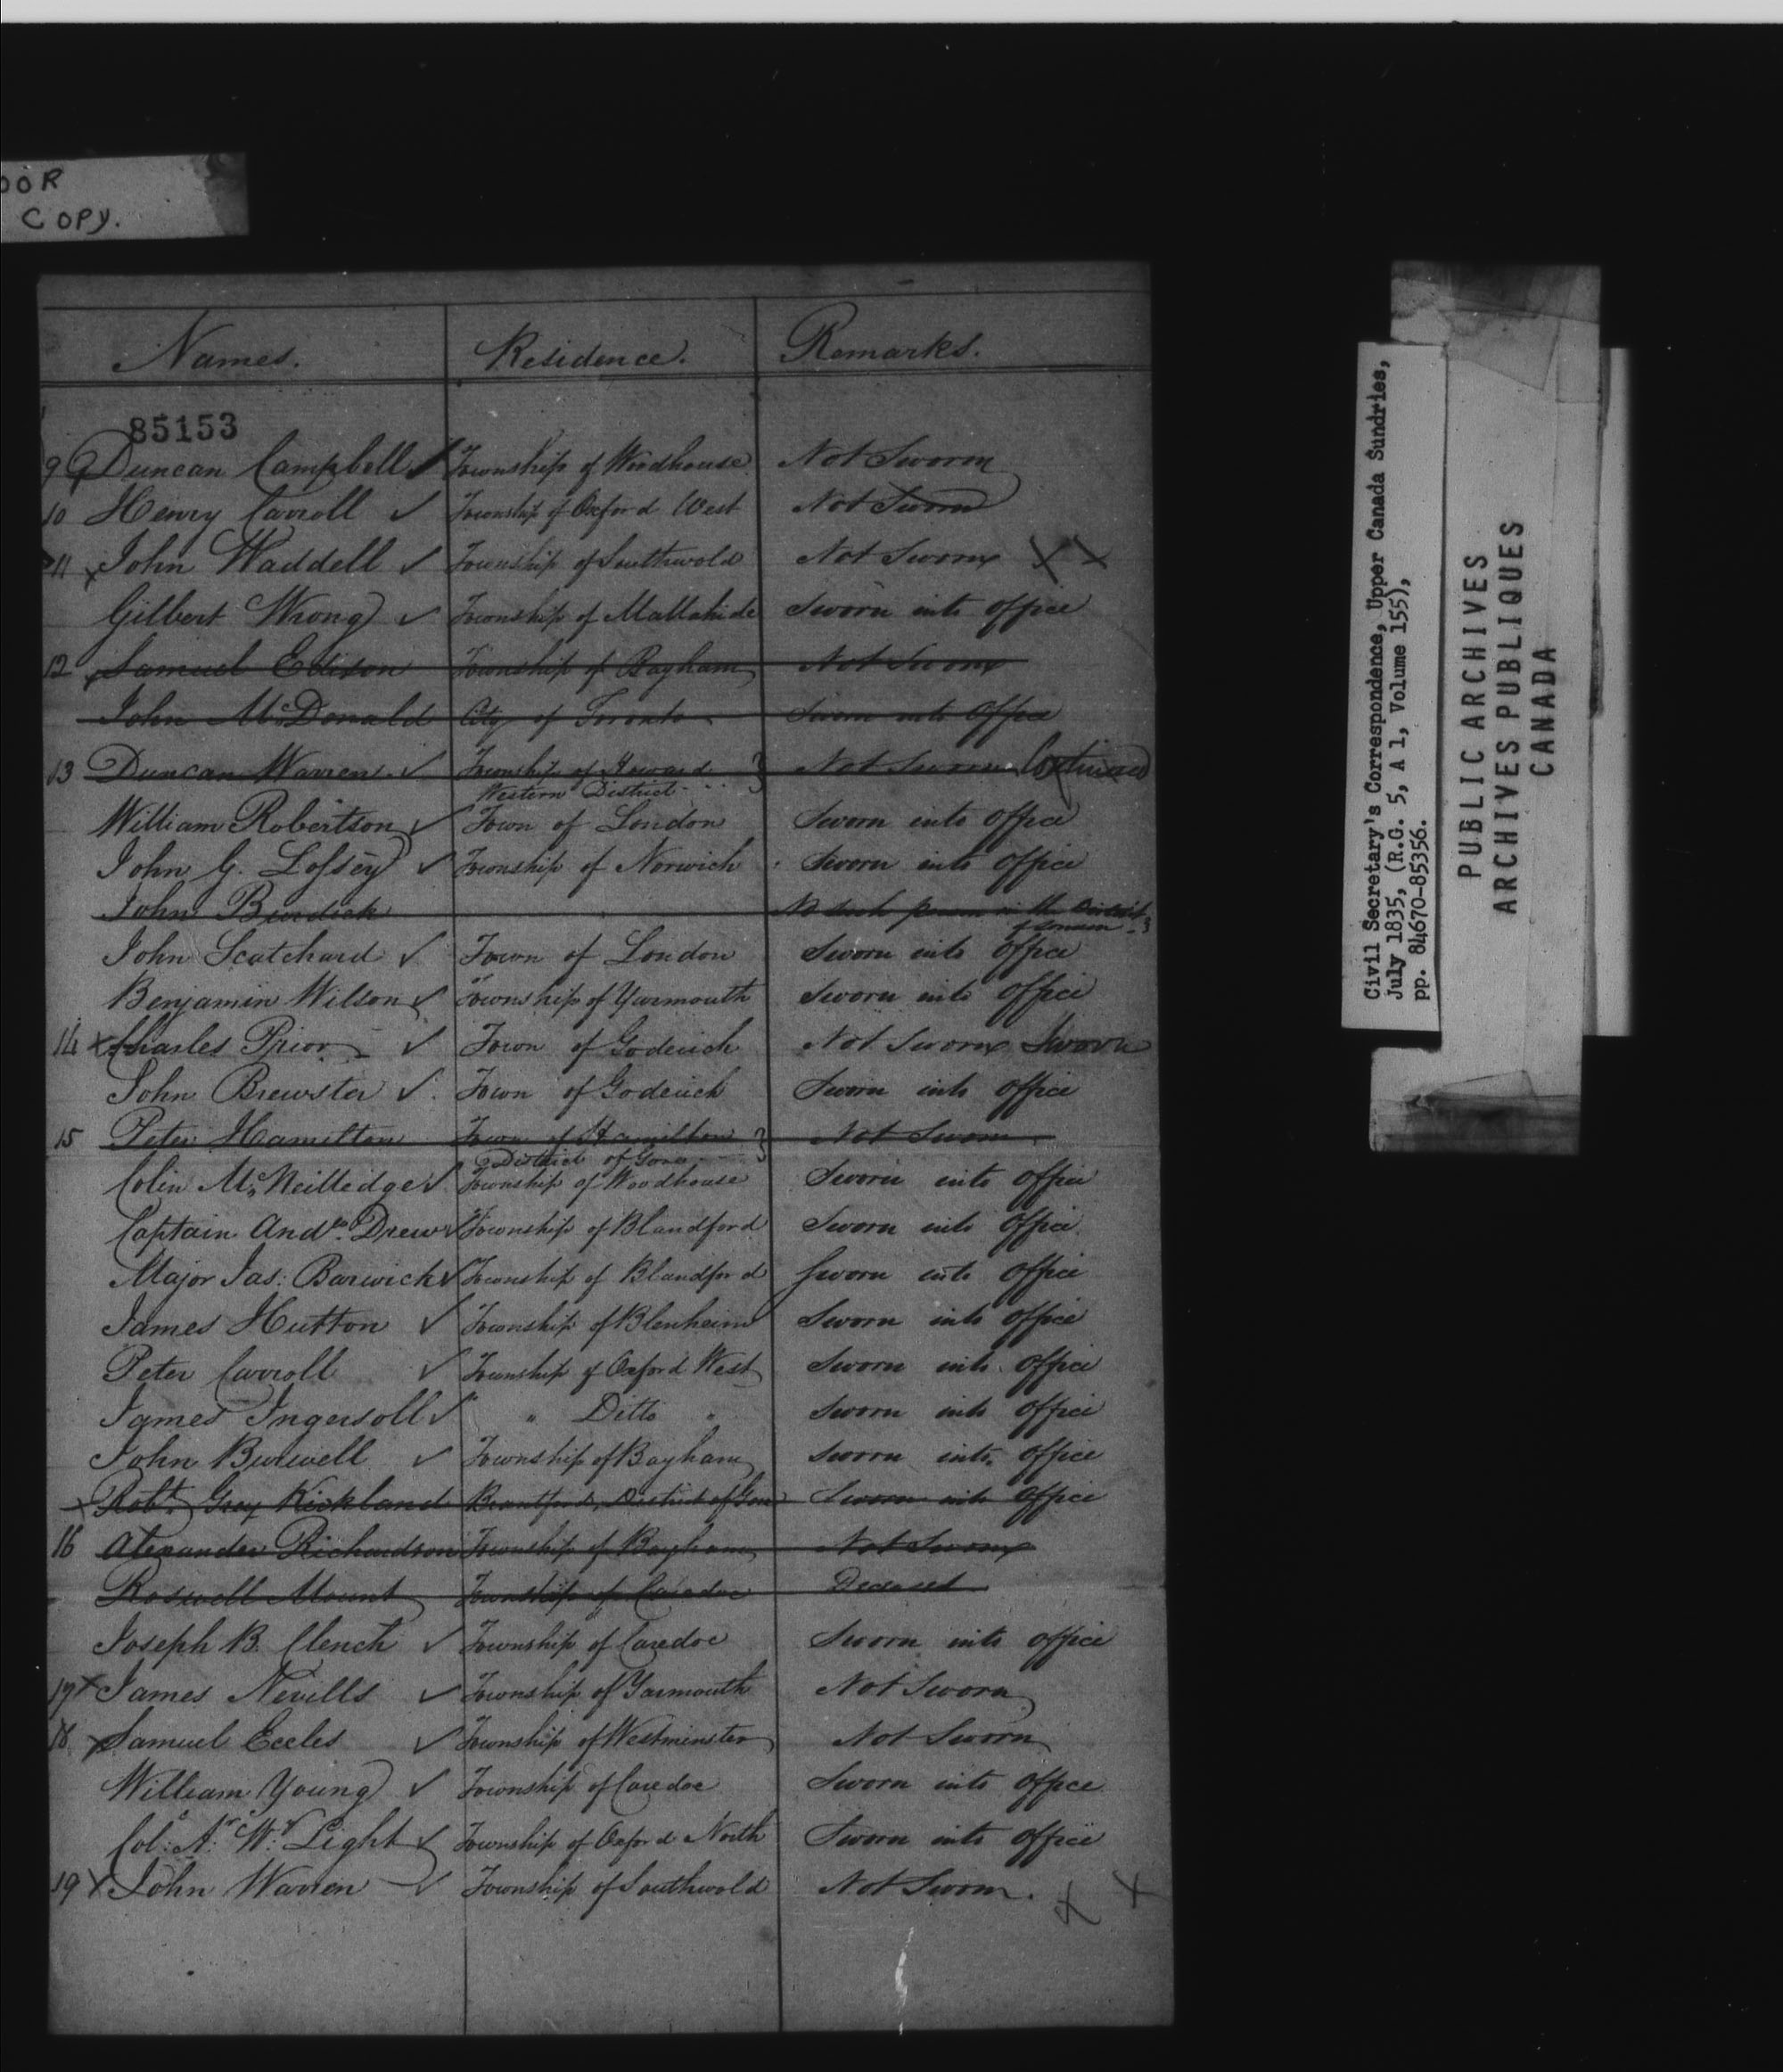 OOR
COPY.
Names. Residence. Remarks.
85153
9 Duncan Campbell ✓ Township of Woodhouse Not Sworn
10 Henry Carroll ✓ Township of Oxford West Not Sworn
11 x John Waddell ✓ Township of Southwold Not Sworn X X
Gilbert Wrong ✓ Township of Mallahide Sworn into office
12 x Samuel Edison Township of Bayham Not Sworn
John McDonald City of Toronto Sworn into Office
13 Duncan Warren ✓ Township of Howard } Not Sworn
Western District
William Robertson ✓ Town of London Sworn into office
John G. Lossey ✓ Township of Norwich Sworn into office
John Burdick No such person in the District
of London
John Scatchard ✓ Town of London Sworn into office
Benjamin Wilson ✓ Township of Yarmouth Sworn into office
14 x Charles Prior ✓ Town of Goderich Not Sworn Sworn
John Brewster ✓ Town of Goderich Sworn into office
15 Peter Hamilton Town of Hamilton } Not Sworn
District of Gore
Colin McNeilledge ✓ Township of Woodhouse Sworn into office
Captain Andw. Drew ✓ Township of Blandford Sworn into office
Major Jas: Barwick ✓ Township of Blandford Sworn into office
James Hutton ✓ Township of Blenheim Sworn into office
Peter Carroll ✓ Township of Oxford West Sworn into office
James Ingersoll ✓ " Ditto " Sworn into office
John Burwell ✓ Township of Bayham Sworn into office
x Robt. Grey Kirkland Brantford, District of Gore Sworn into office
16 Alexander Richardson Township of Bayham Not Sworn
Roswell Mount Township of Caredoc Deceased
Joseph B. Clench ✓ Township of Caredoc Sworn into office
17 x James Nevills ✓ Township of Yarmouth Not Sworn
18 x Samuel Eccles ✓ Township of Westminster Not Sworn
William Young ✓ Township of Caredoc Sworn into office
Col: Ar. Wy. Light ✓ Township of Oxford North Sworn into office
19 x John Warren ✓ Township of Southwold Not Sworn. X X
Civil Secretary's Correspondence, Upper Canada Sundries,
July 1835, (R.G. 5, A 1, Volume 155),
pp. 84670-85356.
PUBLIC ARCHIVES
ARCHIVES PUBLIQUES
CANADA